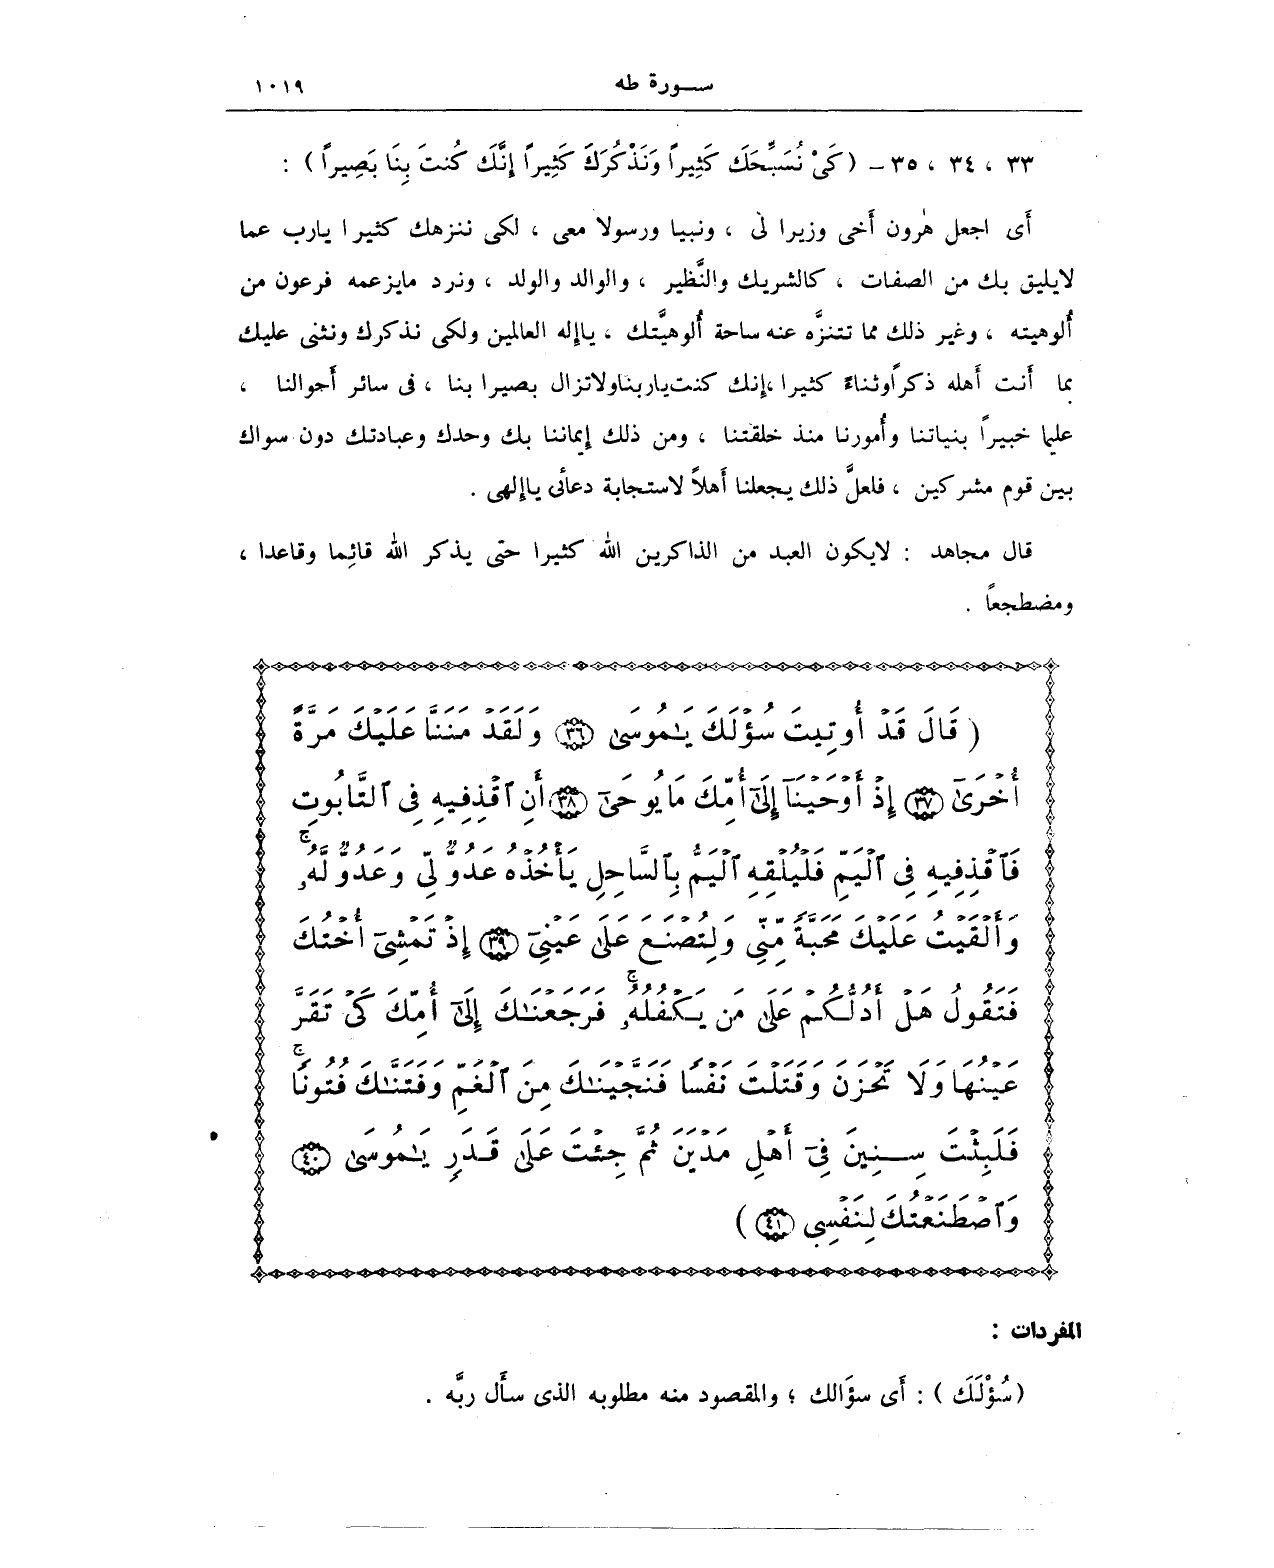 سورة طه ١٠١٩
٣٣ ، ٣٤ ، ٣٥ – (كَىْ نُسَبِّحَكَ كَثِيراً وَنَذْكُرَكَ كَثِيراً إِنَّكَ كُنتَ بِنَا بَصِيراً) :
أَى اجعل هٰرون أَخى وزيرا لى ، ونبيا ورسولا معى ، لكى ننزهك كثيرا يارب عما
لايليق بك من الصفات ، كالشريك والنَّظير ، والوالد والولد ، ونرد مايزعمه فرعون من
أُلوهيته ، وغير ذلك مما تتنزَّه عنه ساحة أُلوهيَّتك ، ياإله العالمين ولكى نذكرك ونثنى عليك
بما أَنت أَهله ذكراً وثناءً كثيرا ،إنك كنت ياربنا ولاتزال بصيرا بنا ، فى سائر أَحوالنا ،
عليما خبيراً بنياتنا وأُمورنا منذ خلقتنا ، ومن ذلك إيماننا بك وحدك وعبادتك دون سواك
بين قوم مشركين ، فلعلَّ ذلك يجعلنا أَهلاً لاستجابة دعائى ياإلهى .
قال مجاهد : لايكون العبد من الذاكرين الله كثيرا حتى يذكر الله قائِما وقاعدا ،
ومضطجعاً .
( قَالَ قَدْ أُوتِيتَ سُؤْلَكَ يَـٰمُوسَىٰ ٣٦ وَلَقَدْ مَنَنَّا عَلَيْكَ مَرَّةً
أُخْرَىٰٓ ٣٧ إِذْ أَوْحَيْنَآ إِلَىٰٓ أُمِّكَ مَا يُوحَىٰٓ ٣٨ أَنِ ٱقْذِفِيهِ فِى ٱلتَّابُوتِ
فَٱقْذِفِيهِ فِى ٱلْيَمِّ فَلْيُلْقِهِ ٱلْيَمُّ بِٱلسَّاحِلِ يَأْخُذْهُ عَدُوٌّ لِّى وَعَدُوٌّ لَّهُۥۚ
وَأَلْقَيْتُ عَلَيْكَ مَحَبَّةً مِّنِّى وَلِتُصْنَعَ عَلَىٰ عَيْنِىٓ ٣٩ إِذْ تَمْشِىٓ أُخْتُكَ
فَتَقُولُ هَلْ أَدُلُّكُمْ عَلَىٰ مَن يَكْفُلُهُۥۖ فَرَجَعْنَـٰكَ إِلَىٰٓ أُمِّكَ كَىْ تَقَرَّ
عَيْنُهَا وَلَا تَحْزَنَ وَقَتَلْتَ نَفْسًا فَنَجَّيْنَـٰكَ مِنَ ٱلْغَمِّ وَفَتَنَّـٰكَ فُتُونًاۚ
فَلَبِثْتَ سِنِينَ فِىٓ أَهْلِ مَدْيَنَ ثُمَّ جِئْتَ عَلَىٰ قَدَرٍ يَـٰمُوسَىٰ ٤٠
وَٱصْطَنَعْتُكَ لِنَفْسِى ٤١ )
المفردات :
(سُؤْلَكَ ) : أَى سؤَالك ؛ والمقصود منه مطلوبه الذى سأَل ربَّه .